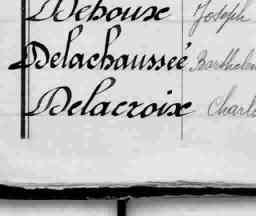 Deboux Joseph
Delachaussée Barthelem
Delacroix Charl